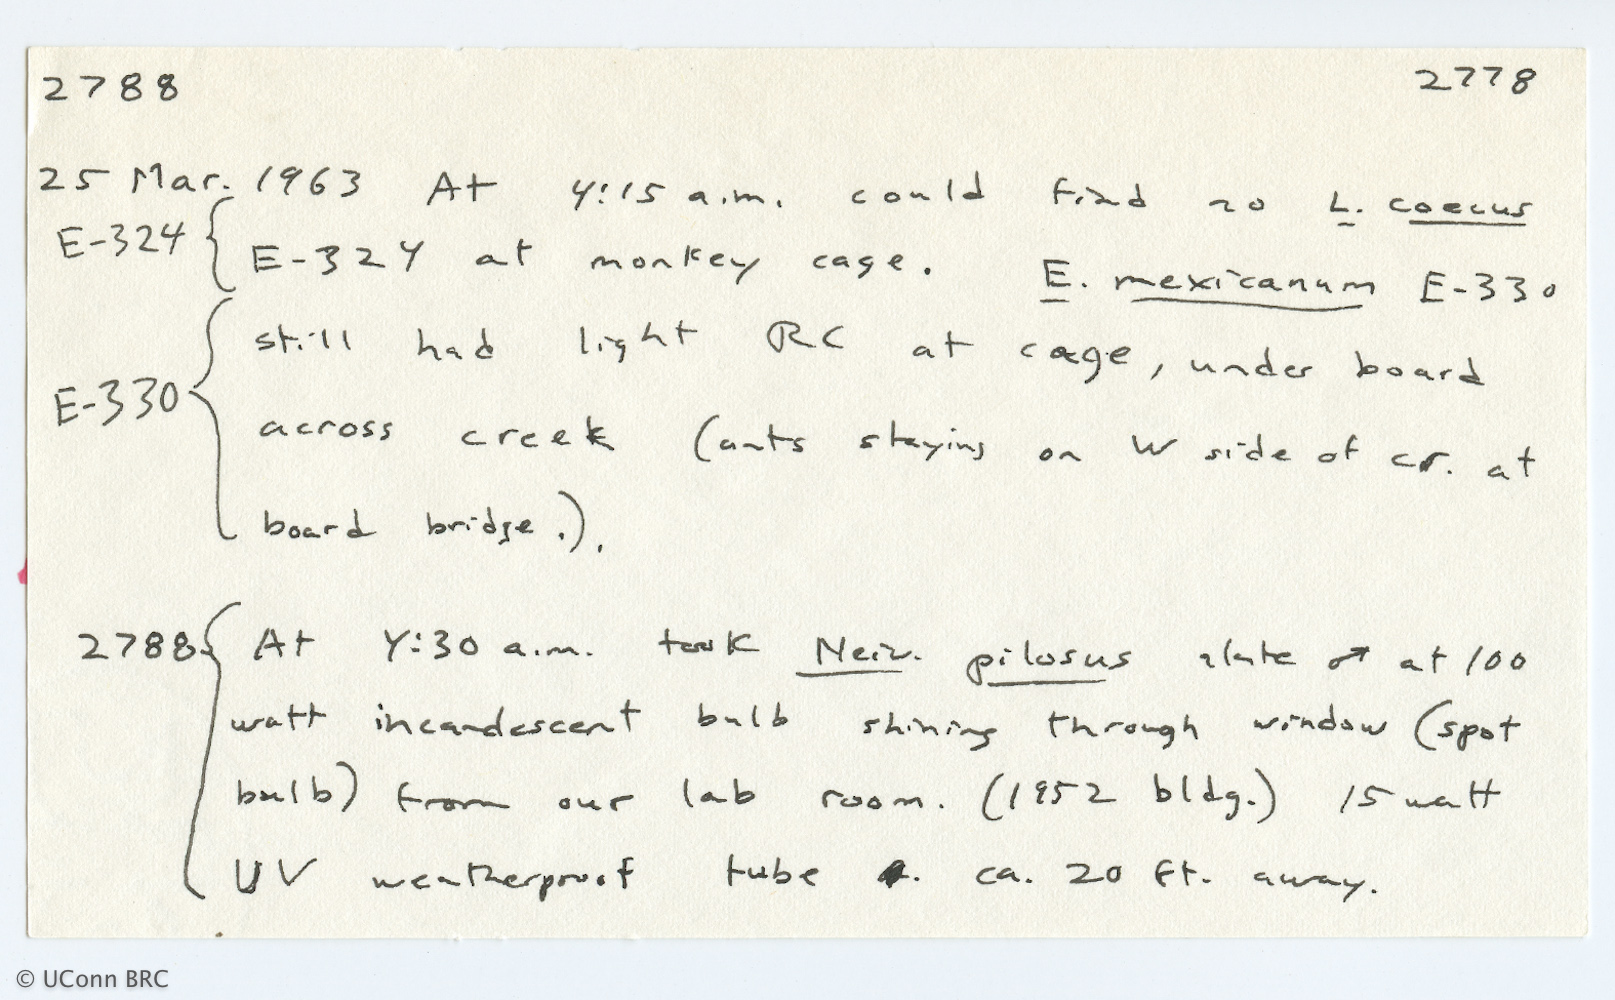 2788 2778
25 Mar. 1963 At 4:15 a.m. could find no L. coecus
E-324 { E-324 at monkey cage. E. mexicanum E-330
still had light RC at cage, under board
E-330 { across creek (ants staying on W side of cr. at
board bridge.).
2788 { At 4:30 a.m. took Neiv. pilosus alate ♂ at 100
watt incandescent bulb shining through window (spot
bulb) from our lab room. (1952 bldg.) 15 watt
UV weatherproof tube ca. 20 ft. away.
© UConn BRC